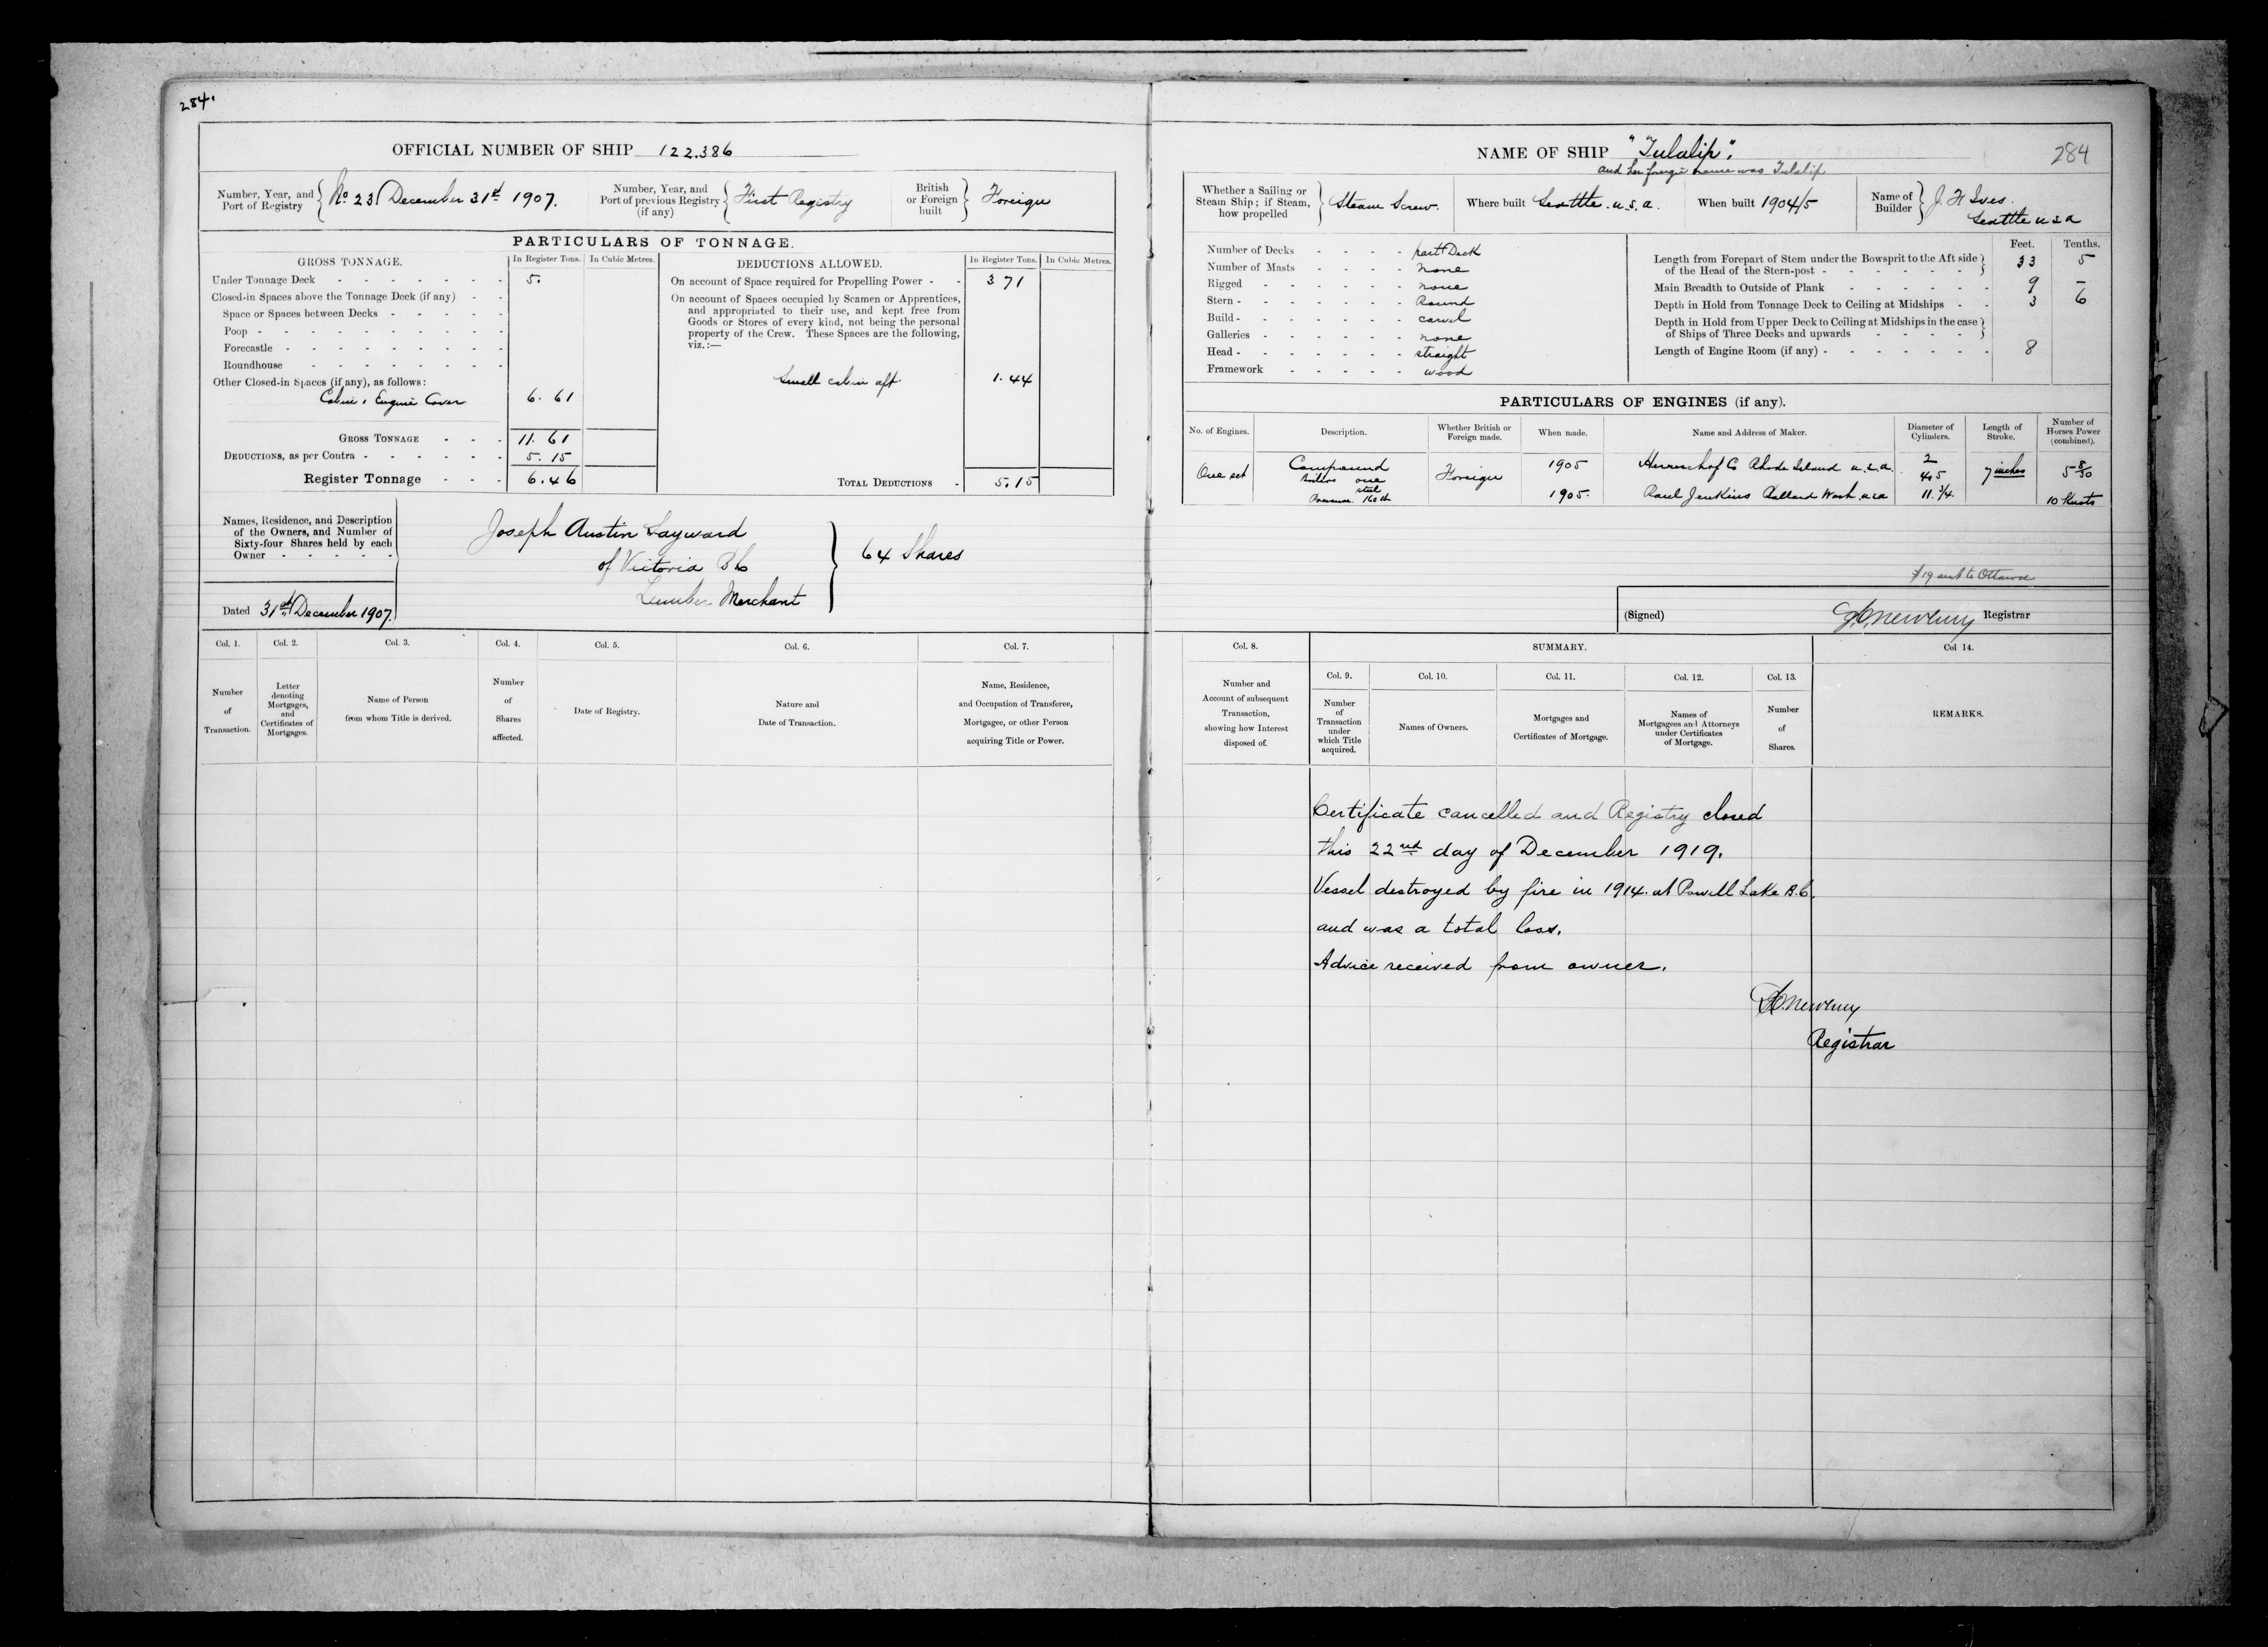 284.
OFFICIAL NUMBER OF SHIP 122.386
Number, Year, and Port of Registry } No 23 / December 31st 1907.
Number, Year, and Port of previous Registry (if any) } First Registry
British or Foreign built } Foreign
PARTICULARS OF TONNAGE.
GROSS TONNAGE. In Register Tons. In Cubic Metres.
Under Tonnage Deck 5.
Closed-in Spaces above the Tonnage Deck (if any)
Space or Spaces between Decks
Poop
Forecastle
Roundhouse
Other Closed-in Spaces (if any), as follows:
Cabin, Engine Cover 6. 61
GROSS TONNAGE 11. 61
DEDUCTIONS, as per Contra 5. 15
Register Tonnage 6. 46
DEDUCTIONS ALLOWED. In Register Tons. In Cubic Metres.
On account of Space required for Propelling Power 3 71
On account of Spaces occupied by Seamen or Apprentices,
and appropriated to their use, and kept free from
Goods or Stores of every kind, not being the personal
property of the Crew. These Spaces are the following,
viz.:—
Small cabin aft. 1. 44
TOTAL DEDUCTIONS 5. 15
Names, Residence, and Description
of the Owners, and Number of
Sixty-four Shares held by each
Owner
Joseph Austin Sayward
of Victoria B C
Lumber Merchant
} 64 Shares
Dated 31st December 1907.
Col. 1. Col. 2. Col. 3. Col. 4. Col. 5. Col. 6. Col. 7.
Number of Transaction.
Letter denoting Mortgages, and Certificates of Mortgages.
Name of Person from whom Title is derived.
Number of Shares affected.
Date of Registry.
Nature and Date of Transaction.
Name, Residence, and Occupation of Transferee, Mortgagee, or other Person acquiring Title or Power.
NAME OF SHIP "Tulalip".
284
and her foreign name was Tulalip
Whether a Sailing or Steam Ship; if Steam, how propelled } Steam Screw.
Where built Seattle. U.S.A.
When built 1904/5
Name of Builder } J. H Ives.
Seattle USA
Number of Decks part Deck
Number of Masts none
Rigged none
Stern Round
Build carvel
Galleries none
Head straight
Framework wood
Feet. Tenths.
Length from Forepart of Stem under the Bowsprit to the Aft side of the Head of the Stern-post 33 5
Main Breadth to Outside of Plank 9 –
Depth in Hold from Tonnage Deck to Ceiling at Midships 3 6
Depth in Hold from Upper Deck to Ceiling at Midships in the case of Ships of Three Decks and upwards
Length of Engine Room (if any) 8
PARTICULARS OF ENGINES (if any).
No. of Engines. Description. Whether British or Foreign made. When made. Name and Address of Maker. Diameter of Cylinders. Length of Stroke. Number of Horses Power (combined).
One set Compound Foreign 1905 Herreschof Co Rhode Island U.S.A. 2 7 inches 5 8/30
Boilers one
steel
Pressure 160 lb 1905. Paul Jenkins Ballard Wash. USA 11.3/4. 10 Knots
(Signed) Registrar
Col. 8. SUMMARY. Col 14.
Col. 9. Col. 10. Col. 11. Col. 12. Col. 13.
Number and Account of subsequent Transaction, showing how Interest disposed of.
Number of Transaction under which Title acquired.
Names of Owners.
Mortgages and Certificates of Mortgage.
Names of Mortgagees and Attorneys under Certificates of Mortgage.
Number of Shares.
REMARKS.
Certificate cancelled and Registry closed
this 22nd day of December 1919.
Vessel destroyed by fire in 1914. at Powell Lake B.C.
and was a total loss.
Advice received from owner.
Newbury
Registrar